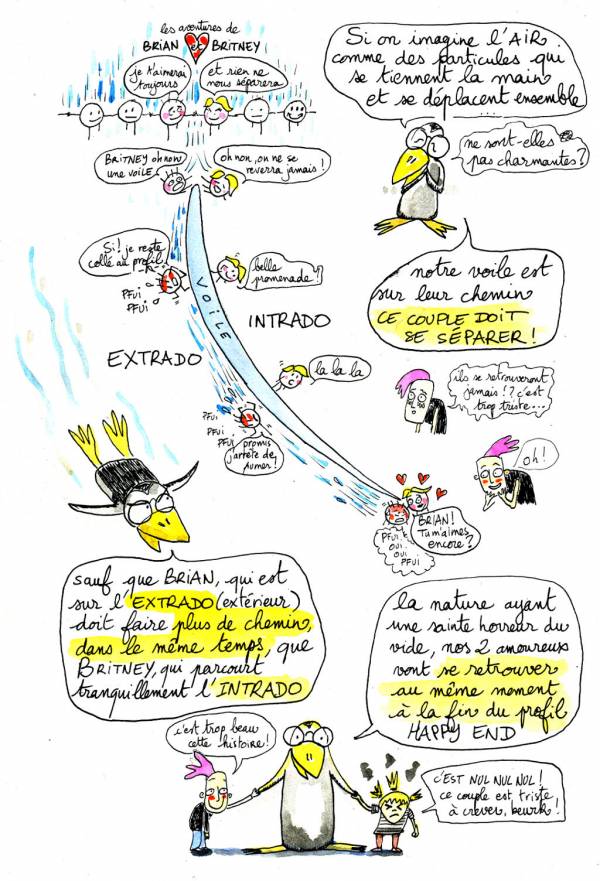 les aventures de
BRIAN et BRITNEY
je t'aimerai
toujours
et rien ne
nous séparera
Si on imagine l'AIR
comme des particules qui
se tiennent la main
et se déplacent ensemble
...
ne sont-elles
pas charmantes?
BRITNEY oh non
une voile
oh non, on ne se
reverra jamais!
Si! je reste
collé au profil!
PFUI
PFUI
belle
promenade!
VOILE
INTRADO
EXTRADO
notre voile est
sur leur chemin
CE COUPLE DOIT
SE SÉPARER!
la la la
ils se retrouveront
jamais!? c'est
trop triste...
PFUI
PFUI
PFUI
promis
j'arrête de
fumer!
oh!
BRIAN!
Tu m'aimes
encore?
PFUI
OUI
OUI
PFUI
sauf que BRIAN, qui est
sur l'EXTRADO (extérieur)
doit faire plus de chemin,
dans le même temps, que
BRITNEY, qui parcourt
tranquillement l'INTRADO
la nature ayant
une sainte horreur du
vide, nos 2 amoureux
vont se retrouver
au même moment
à la fin du profil
HAPPY END
c'est trop beau
cette histoire!
C'EST NUL NUL NUL!
ce couple est triste
à crever, beurk!